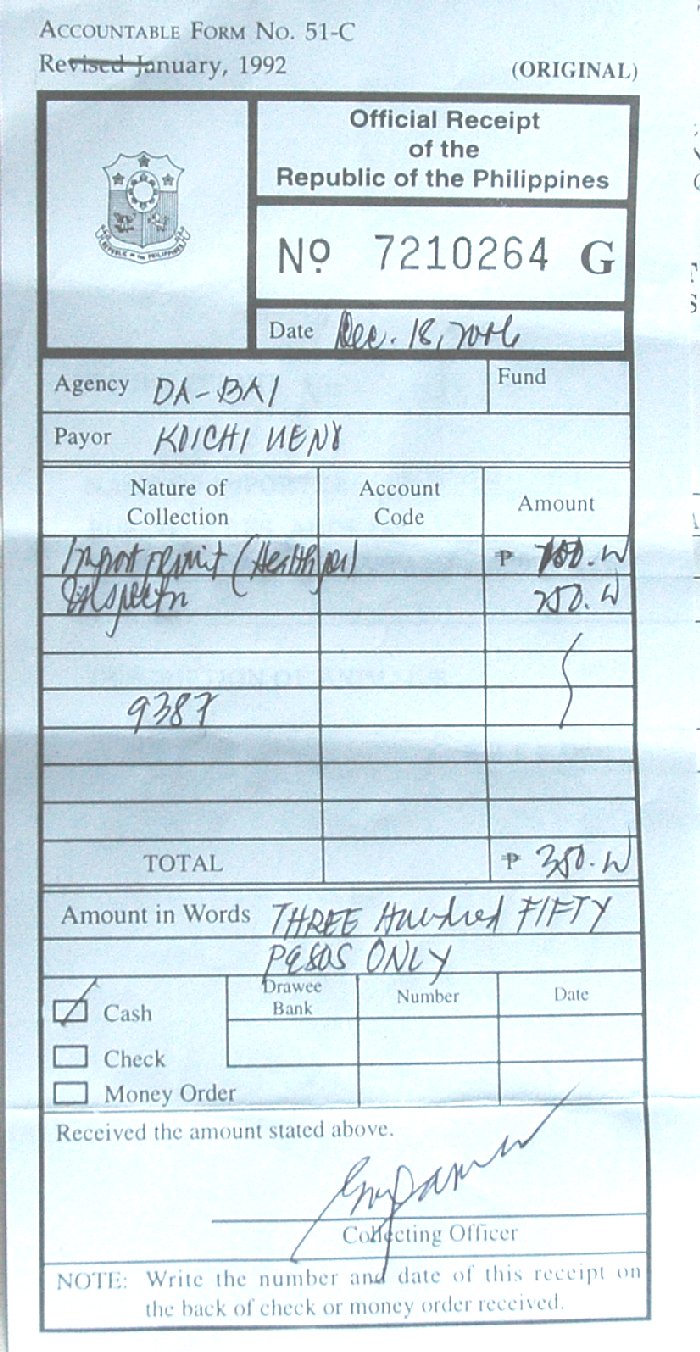 ACCOUNTABLE FORM NO. 51-C
Revised January, 1992
(ORIGINAL)
Official Receipt
of the
Republic of the Philippines
REPUBLIC OF THE PHILIPPINES
Nº 7210264 G
Date Dec. 18, 2006
Agency DA-BAI
Fund
Payor KOICHI UENO
Nature of Collection Account Code Amount
Import permit (Health
₱ 100.00
250.00
9387
TOTAL ₱ 350.00
Amount in Words THREE Hundred FIFTY
PESOS ONLY
Cash
Drawee Bank Number Date
Check
Money Order
Received the amount stated above.
Collecting Officer
NOTE: Write the number and date of this receipt on
the back of check or money order received.